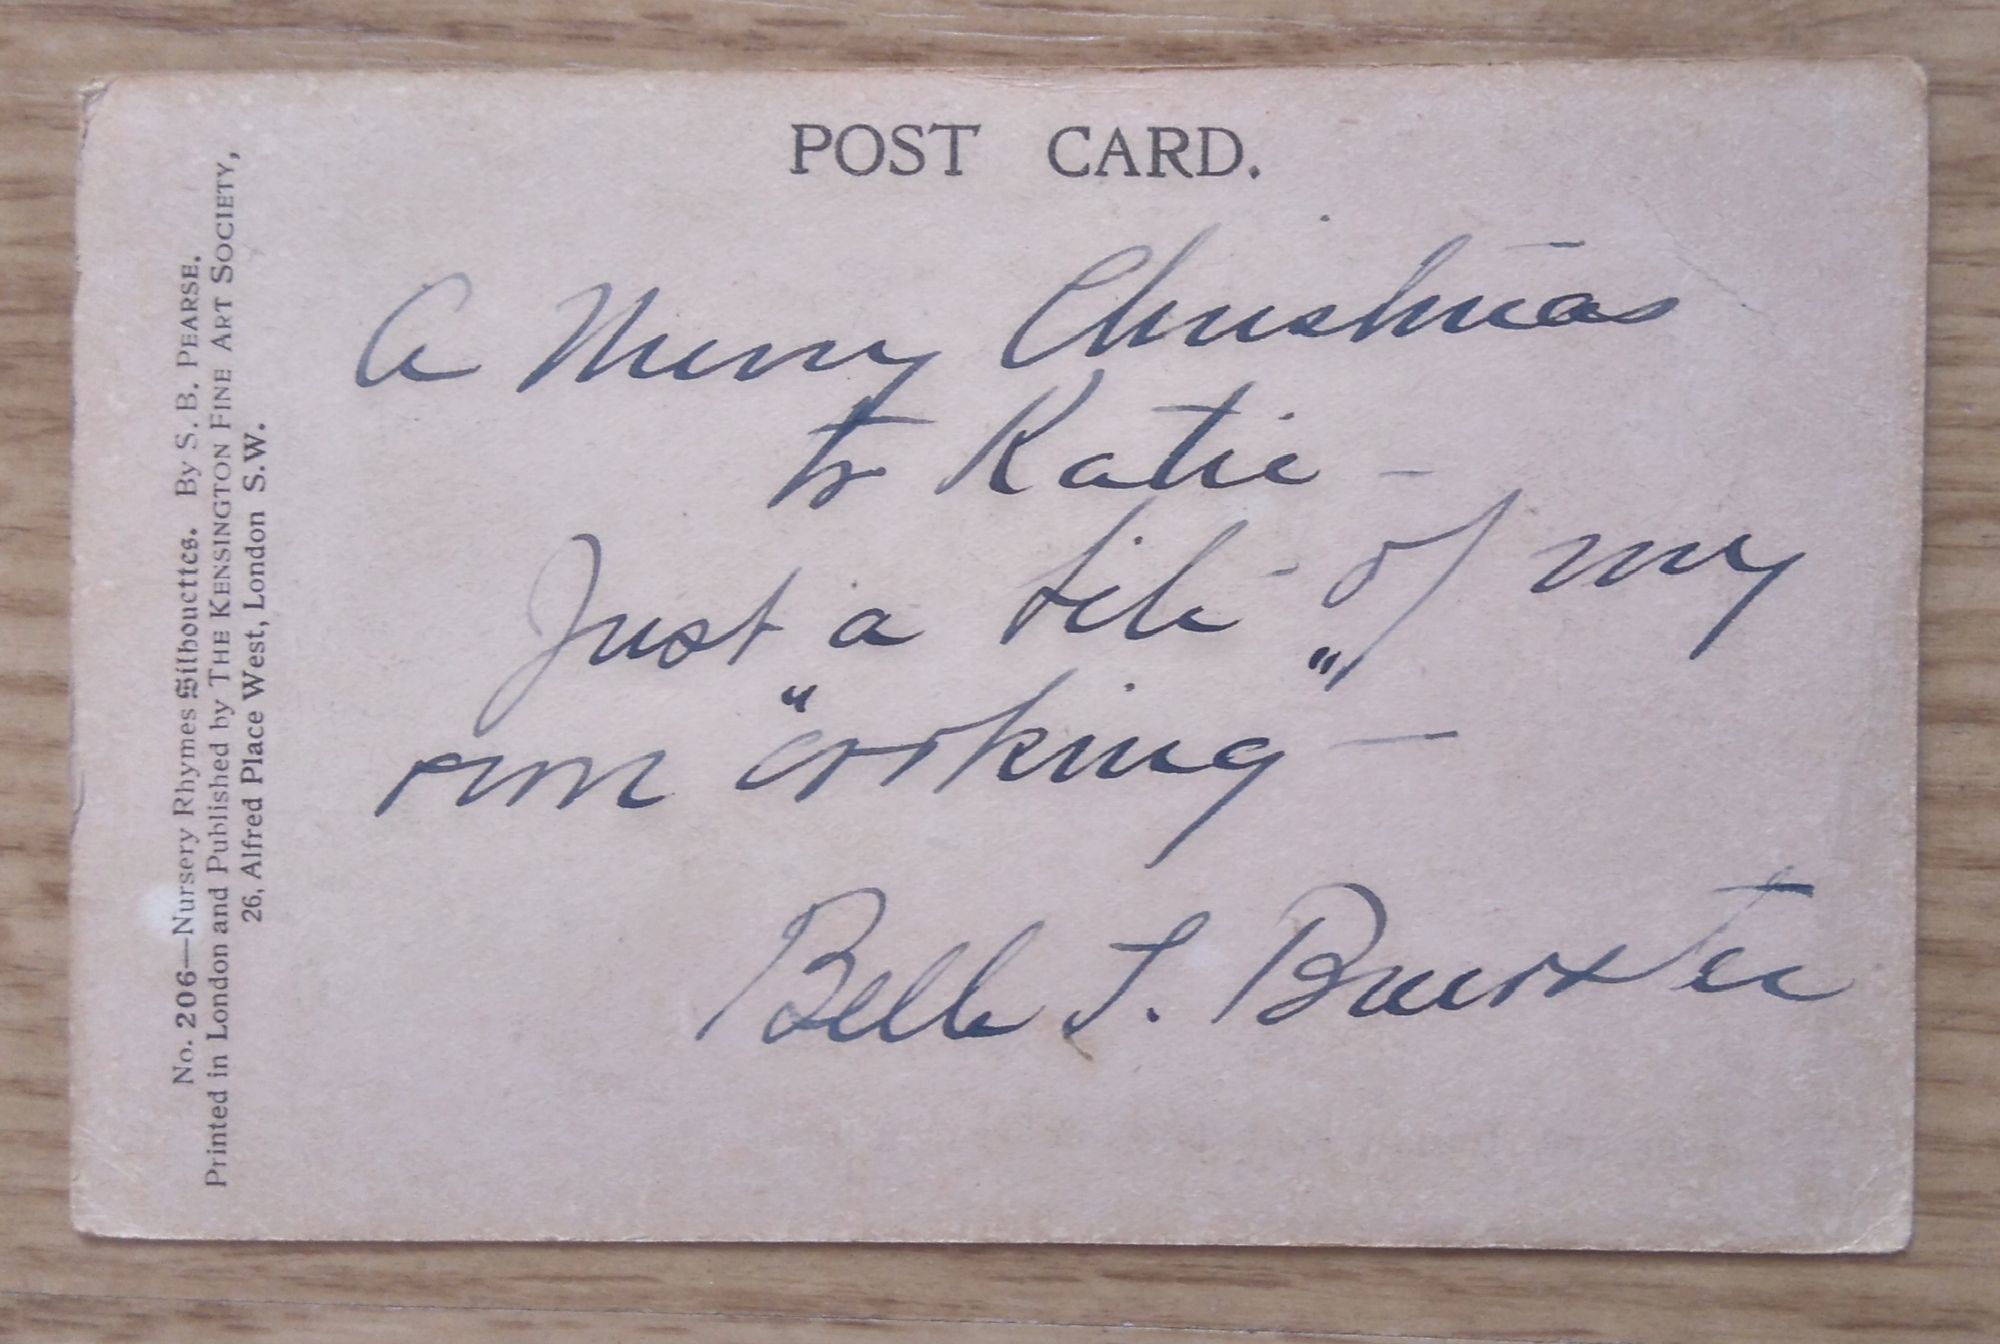 POST CARD.
A Merry Christmas
to Katie –
Just a bite of my
own "cooking" –
Belle Brewster
No. 206—Nursery Rhymes Silhouettes. By S. B. PEARSE.
Printed in London and Published by THE KENSINGTON FINE ART SOCIETY,
26, Alfred Place West, London S.W.